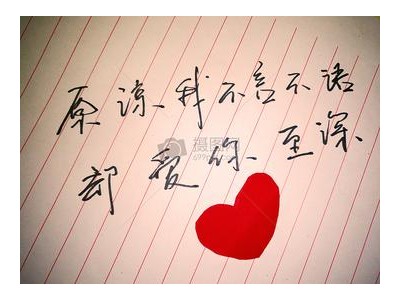 原谅我不言不语
摄图网
却爱你至深